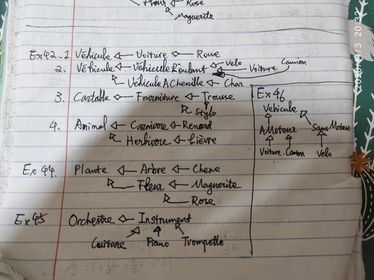 Rose
Marguerite
Ex42.1 Véhicule Voiture Roue
2. Véhicule Véhicule Roulant Vélo Voiture Camion
Véhicule A Chenille Char
3. Cartable Fourniture Trousse
Stylo
4. Animal Carnivore Renard
Herbivore Lièvre
Ex 44. Plante Arbre Chene
Fleur Marguerite
Rose
Ex45 Orchestre Instrument
Guitare Piano Trompette
Ex 46
Vehicule
A Moteur Sans Moteur
Voiture Camion Vélo